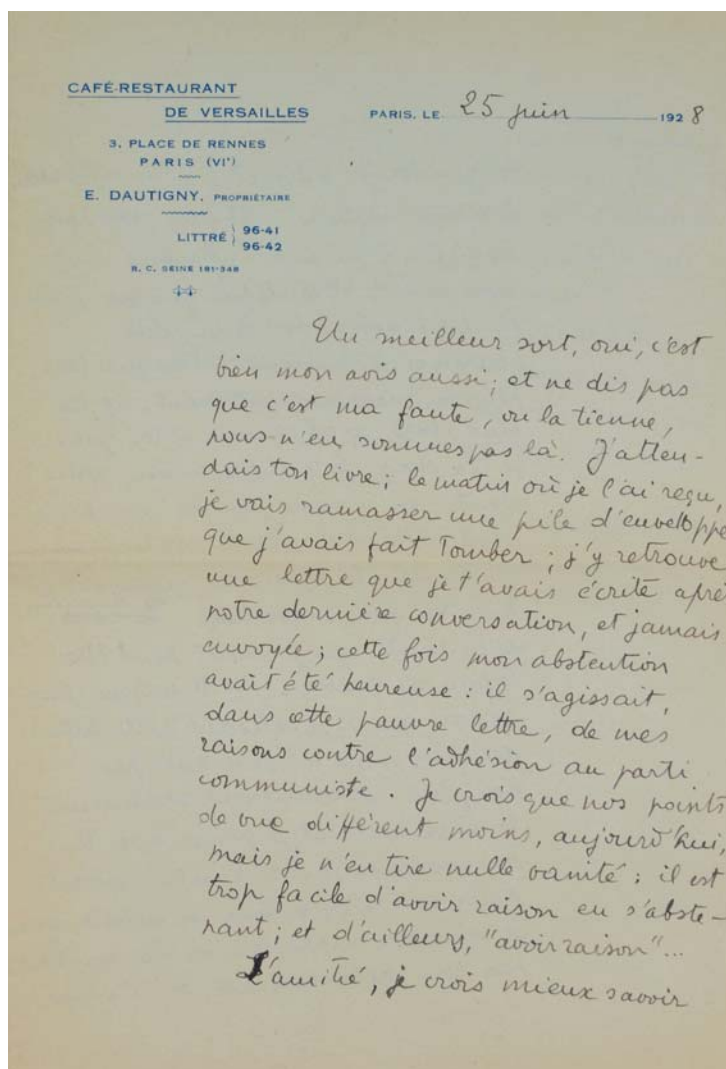 CAFÉ-RESTAURANT
DE VERSAILLES
PARIS, LE 25 juin 1928
3, PLACE DE RENNES
PARIS (VIᵉ)
E. DAUTIGNY, PROPRIÉTAIRE
LITTRÉ } 96-41
96-42
R. C. SEINE 191-348
Un meilleur sort, oui, c'est
bien mon avis aussi ; et ne dis pas
que c'est ma faute, ou la tienne,
nous n'en sommes pas là. J'atten-
dais ton livre ; le matin où je l'ai reçu,
je vais ramasser une pile d'enveloppe
que j'avais fait tomber ; j'y retrouve
une lettre que je t'avais écrite aprè
notre dernière conversation, et jamais
envoyée ; cette fois mon abstention
avait été heureuse : il s'agissait,
dans cette pauvre lettre, de mes
raisons contre l'adhésion au parti
communiste. Je crois que nos points
de vue diffèrent moins, aujourd'hui,
mais je n'en tire nulle vanité ; il est
trop facile d'avoir raison en s'abste-
nant ; et d'ailleurs, "avoir raison"...
L'amitié, je crois mieux savoir